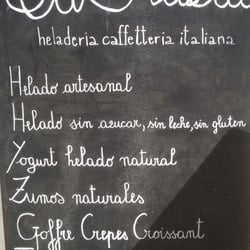 heladeria caffetteria italiana
Helado artesanal
Helado sin azucar, sin leche, sin gluten
Yogurt helado natural
Zumos naturales
Goffre Crepes Croissant